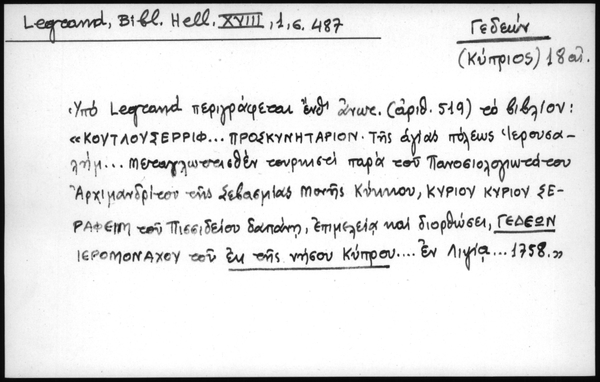 Legrand, Bibl. Hell. XVIII, 1, σ. 487
Γεδεών
(Κύπριος) 18 αἰ.
Ὑπὸ Legrand περιγράφεται ἔνθ' ἀνωτ. (ἀριθ. 519) τὸ βιβλίον:
«ΚΟΥΤΛΟΥΣΕΡΡΙΦ... ΠΡΟΣΚΥΝΗΤΑΡΙΟΝ. Τῆς ἁγίας πόλεως Ἱερουσα-
λήμ... μεταγλωττισθὲν τουρκιστὶ παρὰ τοῦ Πανοσιολογιωτάτου
Ἀρχιμανδρίτου τῆς Σεβασμίας Μονῆς Κύκκου, ΚΥΡΙΟΥ ΚΥΡΙΟΥ ΣΕ-
ΡΑΦΕΙΜ τοῦ Πισσιδείου δαπάνῃ, ἐπιμελείᾳ καὶ διορθώσει, ΓΕΔΕΩΝ
ΙΕΡΟΜΟΝΑΧΟΥ τοῦ ἐκ τῆς νήσου Κύπρου.... ἐν Λιψίᾳ... 1758.»